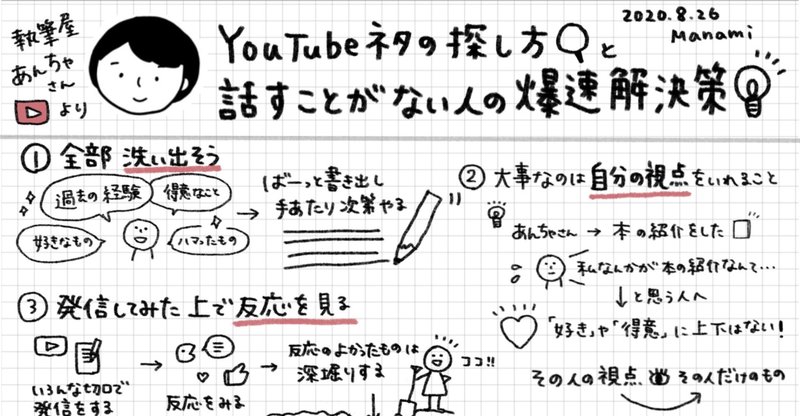 執筆屋
あんちゃ
さん
より
YouTubeネタの探し方と
話すことがない人の爆速解決策
2020.8.26
Manami
① 全部 洗い出そう
過去の経験
得意なこと
好きなもの
ハマったもの
ばーっと書き出し
手あたり次第やる
② 大事なのは自分の視点をいれること
あんちゃさん → 本の紹介をした
私なんかが本の紹介なんて…
↓と思う人へ
「好き」や「得意」に上下はない!
その人の視点、
その人だけのもの
③ 発信してみた上で反応を見る
いろんな切口で
発信をする
→
反応をみる
→
反応のよかったものは
深堀りする
ココ!!